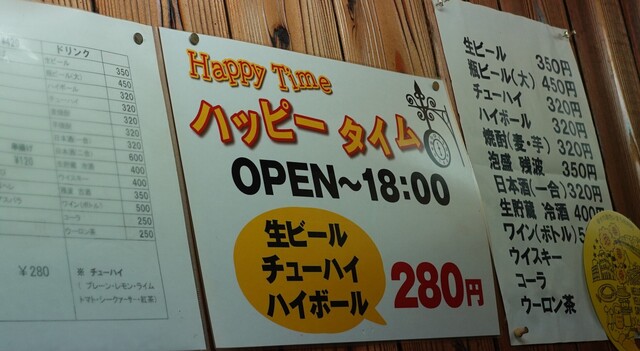 ドリンク
生ビール 350
瓶ビール(大) 450
320
320
320
320
320
600
400
350
ワイン(ボトル) 500
コーラ 250
ウーロン茶 250
¥120
¥280
※ チューハイ
(プレーン・レモン・ライム
トマト・シークヮーサー・紅茶)
Happy Time
ハッピータイム
OPEN〜18:00
生ビール
チューハイ
ハイボール
280円
生ビール 350円
瓶ビール(大) 450円
チューハイ 320円
ハイボール 320円
焼酎(麦・芋) 320円
泡盛 残波 350円
日本酒(一合) 320円
生貯蔵 冷酒 400円
ワイン(ボトル) 5
ウイスキー
コーラ
ウーロン茶